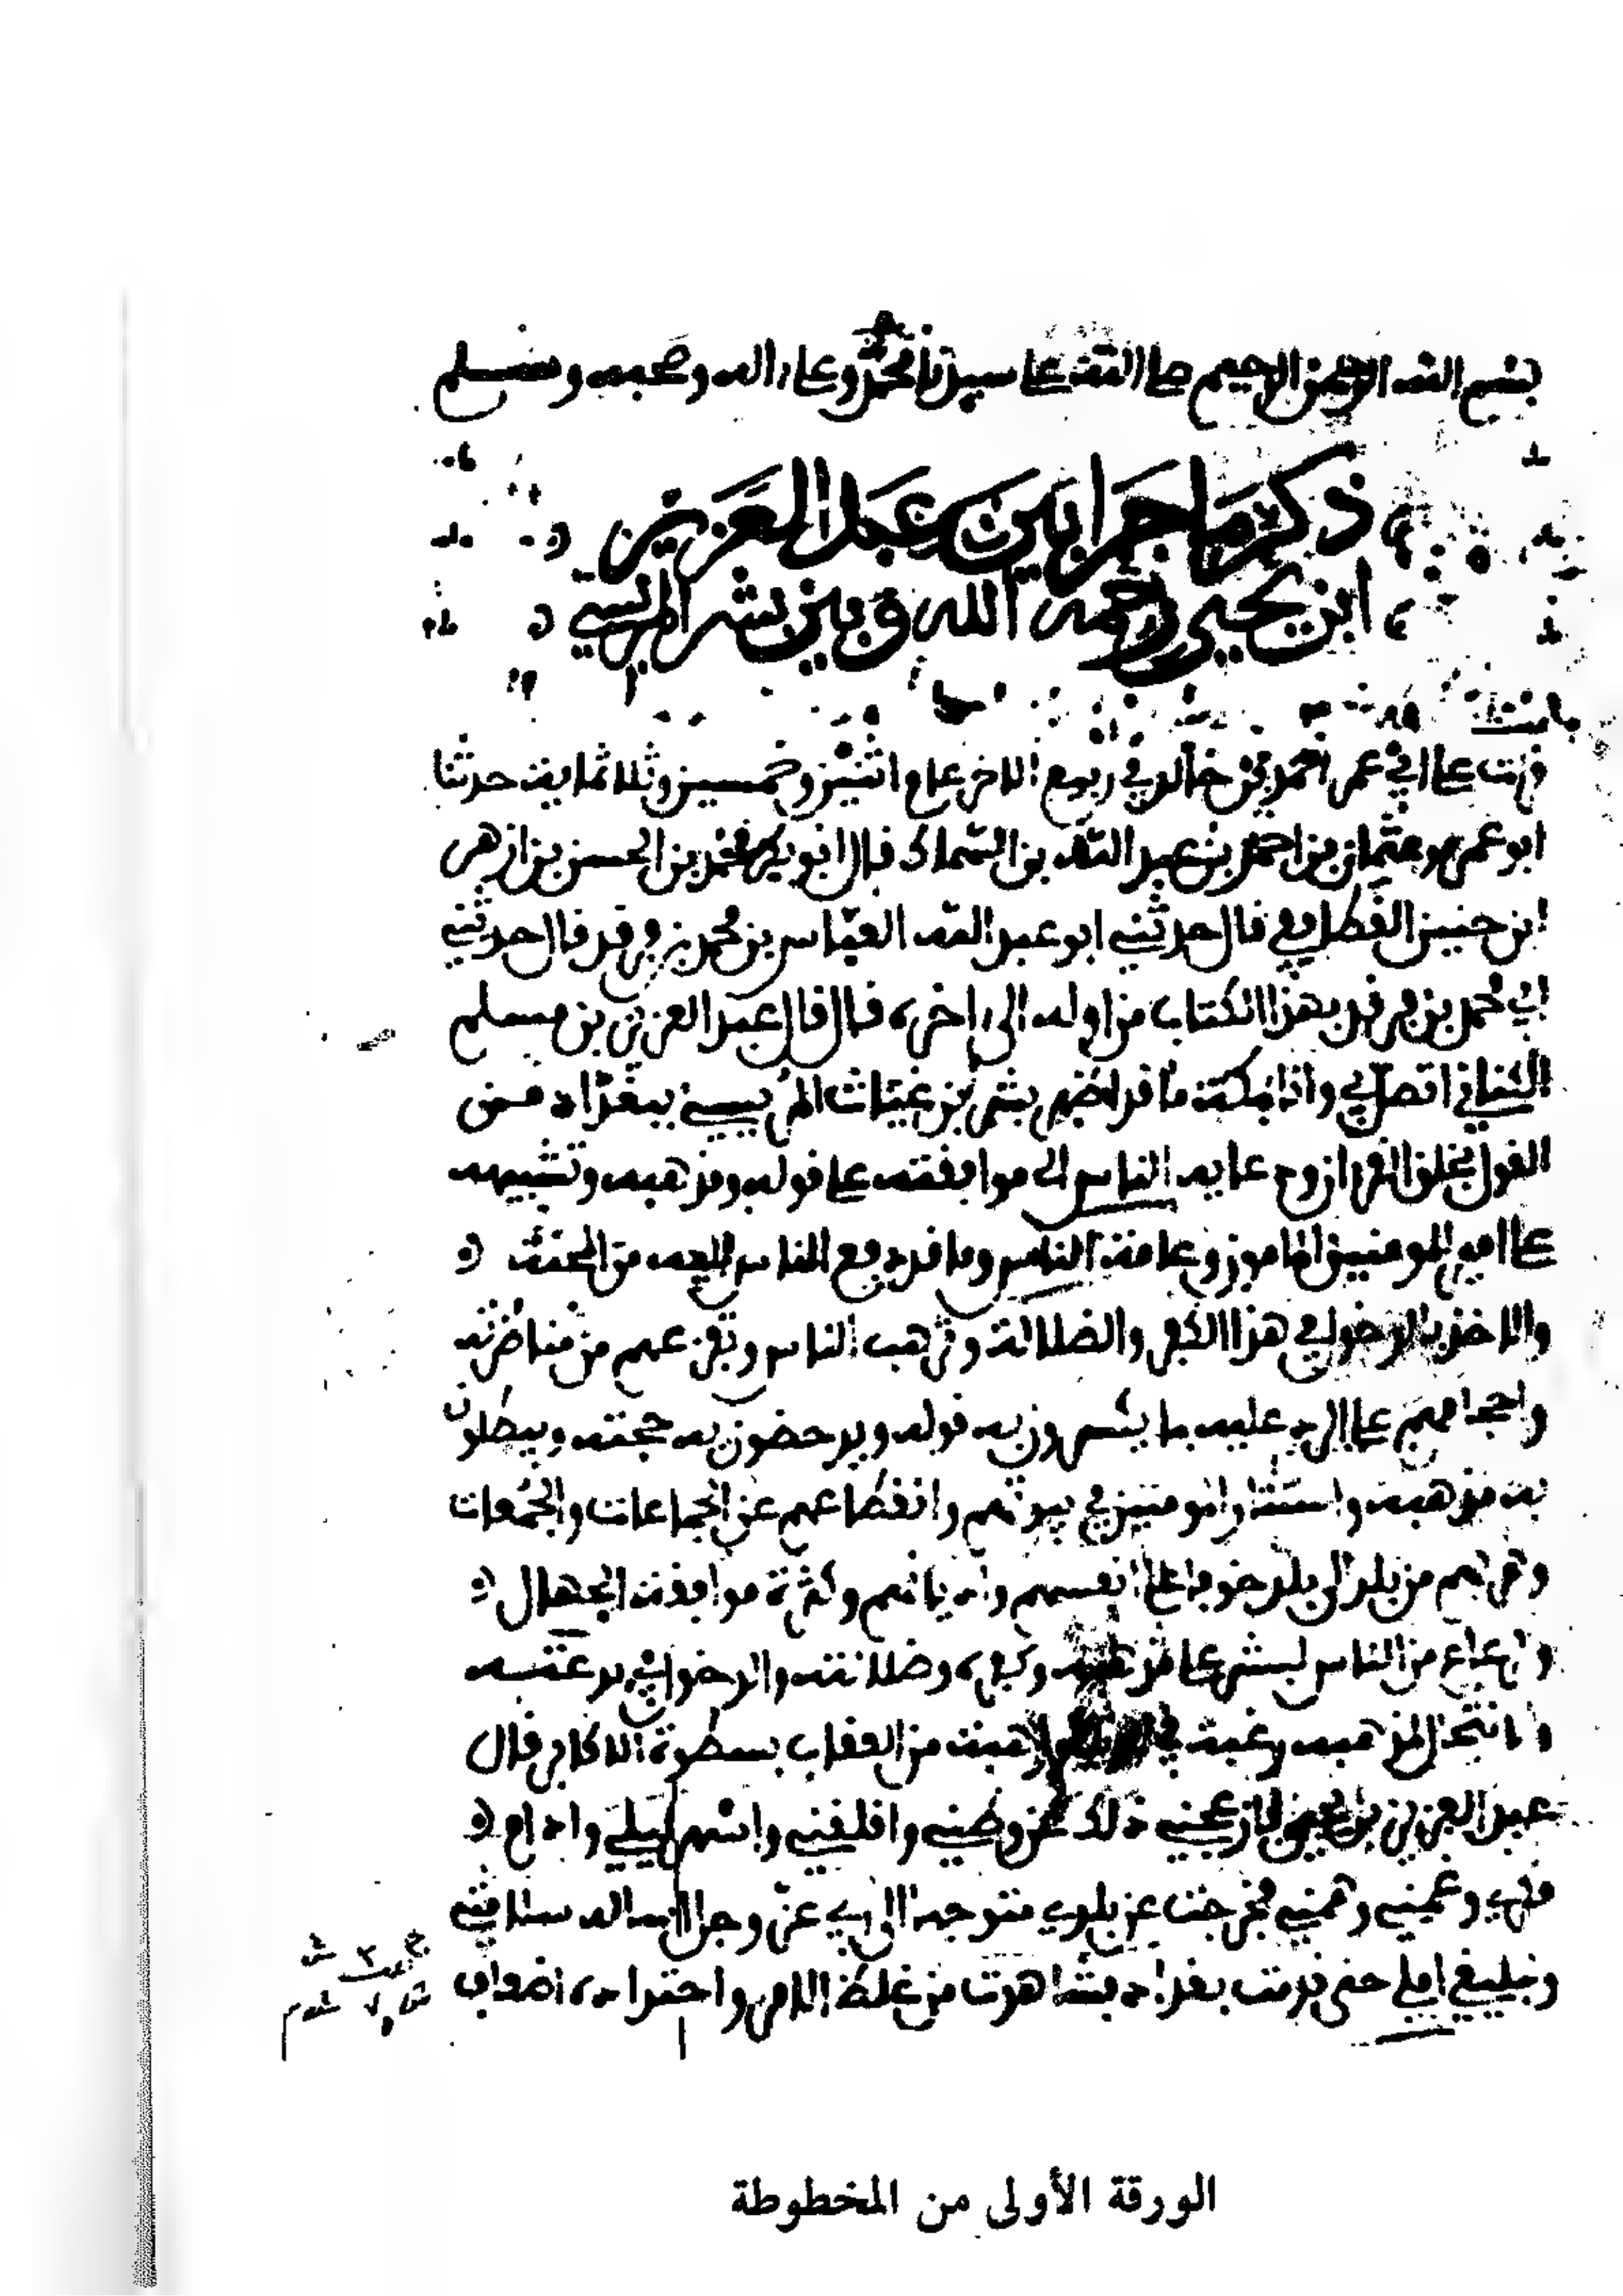 بسم الله الرحمن الرحيم صلى الله على سيدنا محمد وعلى ءاله وصحبه وسلم
ذكر ما جرا بين عبد العزيز
ابن يحيى رحمه الله وبين بشر المريسي
قرئت على ابي عمر احمد بن خالد في ربيع الاخر عام اثنين وخمسين وثلاثماية حدثنا
ابو عمرو عثمان بن احمد بن عبد الله بن السماك قال ابو بكر محمد بن الحسن بن ازهر
ابن حنين القطايعي قال حدثني ابو عبد الله العباس بن محمد بن فرقد قال حدثني
ابي محمد بن فرقد بهذا الكتاب من اوله الى اخره قال قال عبد العزيز بن مسلم
الكناني اتصل بي وانا بمكة ما قد اظهر بشر بن غياث المريسي ببغداد من
القول بخلق القران ودعايه الناس الى موافقته على قوله ومذهبه وتشبيهه
على امير المومنين المامون وعامة الناس وما قد دفع الناس اليه من المحنة
والاخذ بالدخول في هذا الكفر والضلالة وترهب الناس وتفزعهم من مناظرته
واحجامهم على الرد عليه بما يكسرون به قوله ويدحضون به حجته ويبطلون
به مذهبه واستتار المومنين في بيوتهم وانقطاعهم عن الجماعات والجمعات
وهربهم من بلد الى بلد خوفا على انفسهم واديانهم وكثرة موافقة الجهال
والرعاع من الناس لبشر على مذهبه وكفره وضلالته والدخول في بدعته
والانتحال لمذهبه رغبة في الدنيا ورهبة من العقاب بسطوة الاكابر قال
عبد العزيز بن يحيى فازعجني ذلك عن وطني واقلقني واسهر ليلي وادام
فكري وغمني وهمني فخرجت عن بلدي متوجها الى ربي عز وجل اساله سلامتي
وتبليغي املي حتى قدمت بغداد فشاهدت من غلظ الامر واحتداده اضعاف
الورقة الأولى من المخطوطة